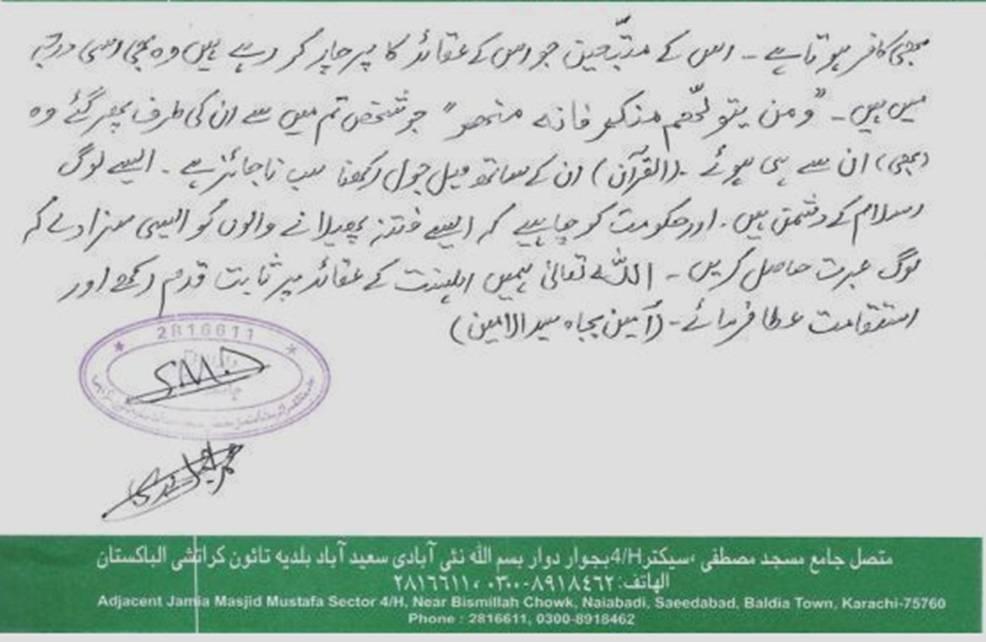 بھی کافر ہوتا ہے ۔ اس کے متبّعین جو اس کے عقائد کا پرچار کر رہے ہیں وہ بھی اسی درجہ
میں ہیں ۔ "ومن یتولّھم منکم فانه منھم" جو شخص تم میں سے ان کی طرف پھر گئے وہ
(بھی) ان سے ہی ہوئے ۔ (القرآن) ان کے ساتھ میل جول رکھنا سب ناجائز ہے ۔ ایسے لوگ
اسلام کے دشمن ہیں ۔ اور حکومت کو چاہیے کہ ایسے فتنہ پھیلانے والوں کو ایسی سزا دے کہ
لوگ عبرت حاصل کریں ۔ اللہ تعالیٰ ہمیں اہلسنت کے عقائد پر ثابت قدم رکھے اور
استقامت عطا فرمائے ۔ (آمین بجاہ سید الامین)
2816611
متصل جامع مسجد مصطفی ،سیکٹر 4/H بجوار دوار بسم الله نئی آبادی سعید آباد بلدیه تائون کراتشی الباکستان
الهاتف: ٢٨١٦٦١١ ، ٠٣٠٠-٨٩١٨٤٦٢
Adjacent Jamia Masjid Mustafa Sector 4/H, Near Bismillah Chowk, Naiabadi, Saeedabad, Baldia Town, Karachi-75760
Phone : 2816611, 0300-8918462